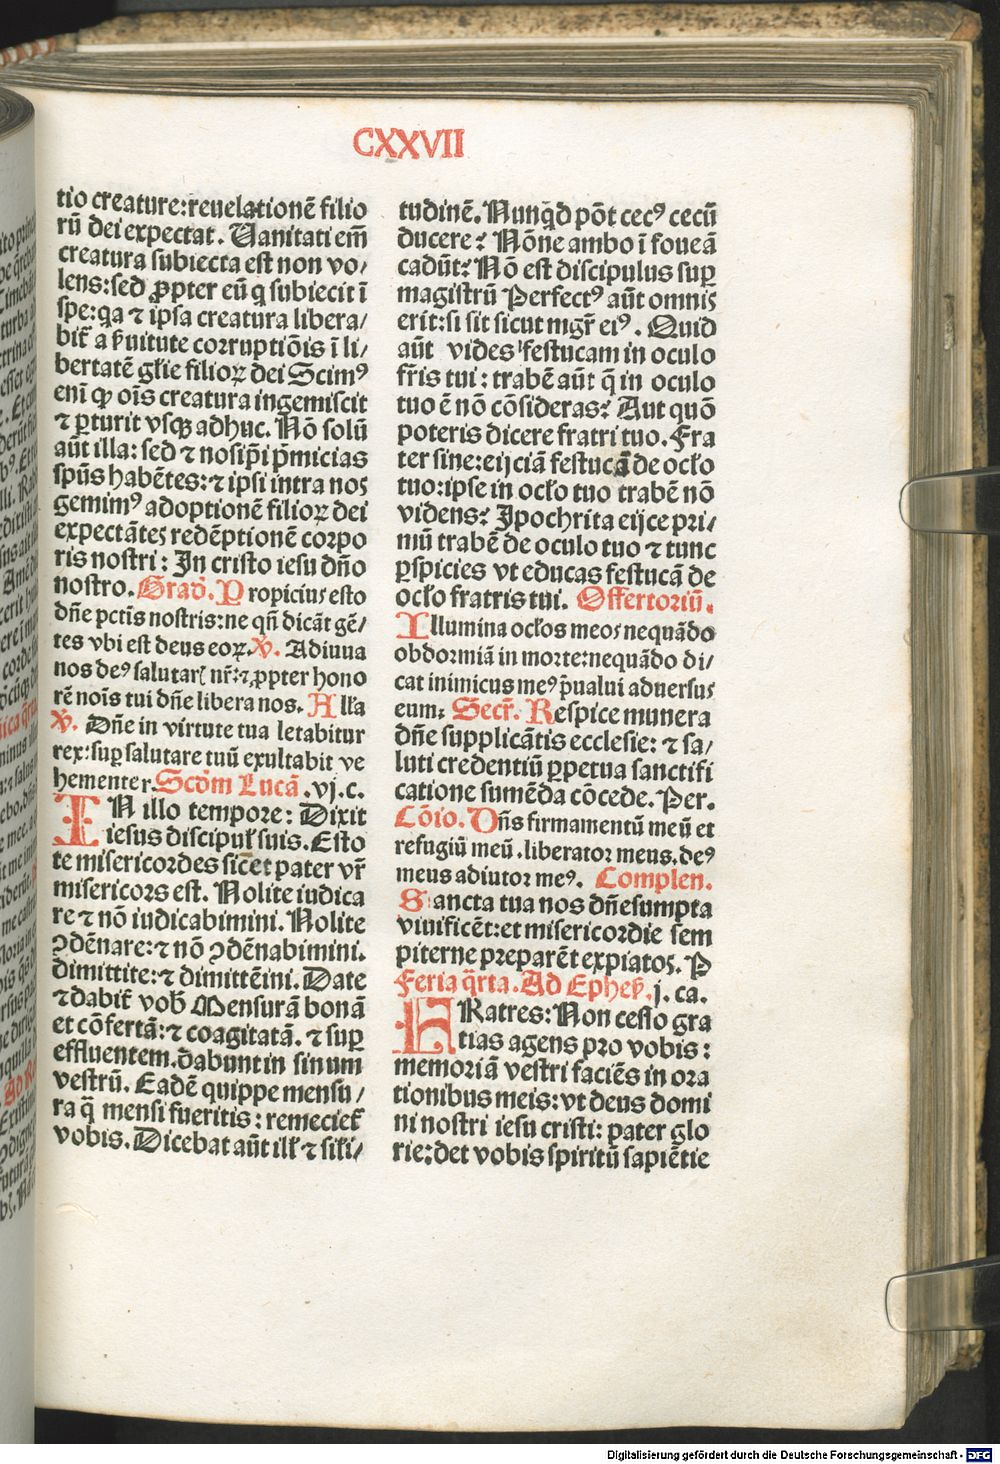 CXXVII
tio creature:reuelationē filio
rū dei expectat. Uanitati em̄
creatura subiecta est non vo/
lens:sed ꝓpter eū q subiecit ī
spe:qa ⁊ ipsa creatura libera/
bit᷑ a ẜuitute corruptiōis ī li/
bertatē gl̄ie filioꝝ dei Scimꝰ
enī ꝙ oīs creatura ingemiscit
⁊ ꝑturit vsqꝫ adhuc. Nō solū
aūt illa: sed ⁊ nosip̄i p̄micias
spūs habētes:⁊ ipsi intra nos
gemimꝰ adoptionē filioꝝ dei
expectātes redēptionē corpo
ris nostri: In cristo iesu dn̄o
nostro. Grad̄. Propicius esto
dn̄e pctīs nostris:ne qn̄ dicāt gē/
tes vbi est deus eoꝝ. ℣. Adiuua
nos deꝰ salutarꝭ nr̄:⁊ ꝓpter hono
rē noīs tui dn̄e libera nos. All̄a
℣. Dn̄e in virtute tua letabitur
rex:suꝑ salutare tuū exultabit ve
hementer. Scd̄m Lucā .vj.c.
IN illo tempore: Dixit
iesus discipul̓ suis. Esto
te misericordes sic̄ et pater vr̄
misericors est. Nolite iudica
re ⁊ nō iudicabimini. Nolite
ꝯdēnare:⁊ nō ꝯdēnabimini.
dimittite:⁊ dimittēini. Date
⁊ dabit᷑ vob̄ Mensurā bonā
et cōfertā:⁊ coagitatā. ⁊ suꝑ
effluentem.dabunt in sinum
vestrū. Eadē quippe mensu/
ra q̄ mensi fueritis: remeciet᷑
vobis. Dicebat aūt ill̓ ⁊ sil̓i/
tudinē. Nunq̄d pōt cecꝰ cecū
ducere? Nōne ambo ī foueā
cadūt? Nō est discipulus suꝑ
magistrū Perfectꝰ aūt omnis
erit:si sit sicut mgr̄ eiꝰ. Quid
aūt vides festucam in oculo
fr̄is tui: trabē aūt q̄ in oculo
tuo ē nō cōsideras? Aut quō
poteris dicere fratri tuo. Fra
ter sine:eijciā festucā de ocl̓o
tuo:ipse in ocl̓o tuo trabē nō
videns? Ipochrita eijce pri/
mū trabē de oculo tuo ⁊ tunc
ꝑspicies vt educas festucā de
ocl̓o fratris tui. Offertoriū.
Illumina ocl̓os meos nequādo
obdormiā in morte:nequādo di/
cat inimicus meꝰ p̄ualui aduersus
eum: Secr̄. Respice munera
dn̄e supplicātis ecclesie: ⁊ sa/
luti credentiū ꝑpetua sanctifi
catione sumēda cōcede. Per.
Cōio. Dn̄s firmamentū meū et
refugiū meū.liberator meus.deꝰ
meus adiutor meꝰ. Complen.
Sancta tua nos dn̄e sumpta
viuificēt:et misericordie sem
piterne preparēt expiatos. P
Feria q̄rta. Ad Ephes̓. j. ca.
FRatres: Non cesso gra
tias agens pro vobis:
memoriā vestri faciēs in ora
tionibus meis:vt deus domi
ni nostri iesu cristi: pater glo
rie:det vobis spiritū sapiētie
Digitalisierung gefördert durch die Deutsche Forschungsgemeinschaft - DFG